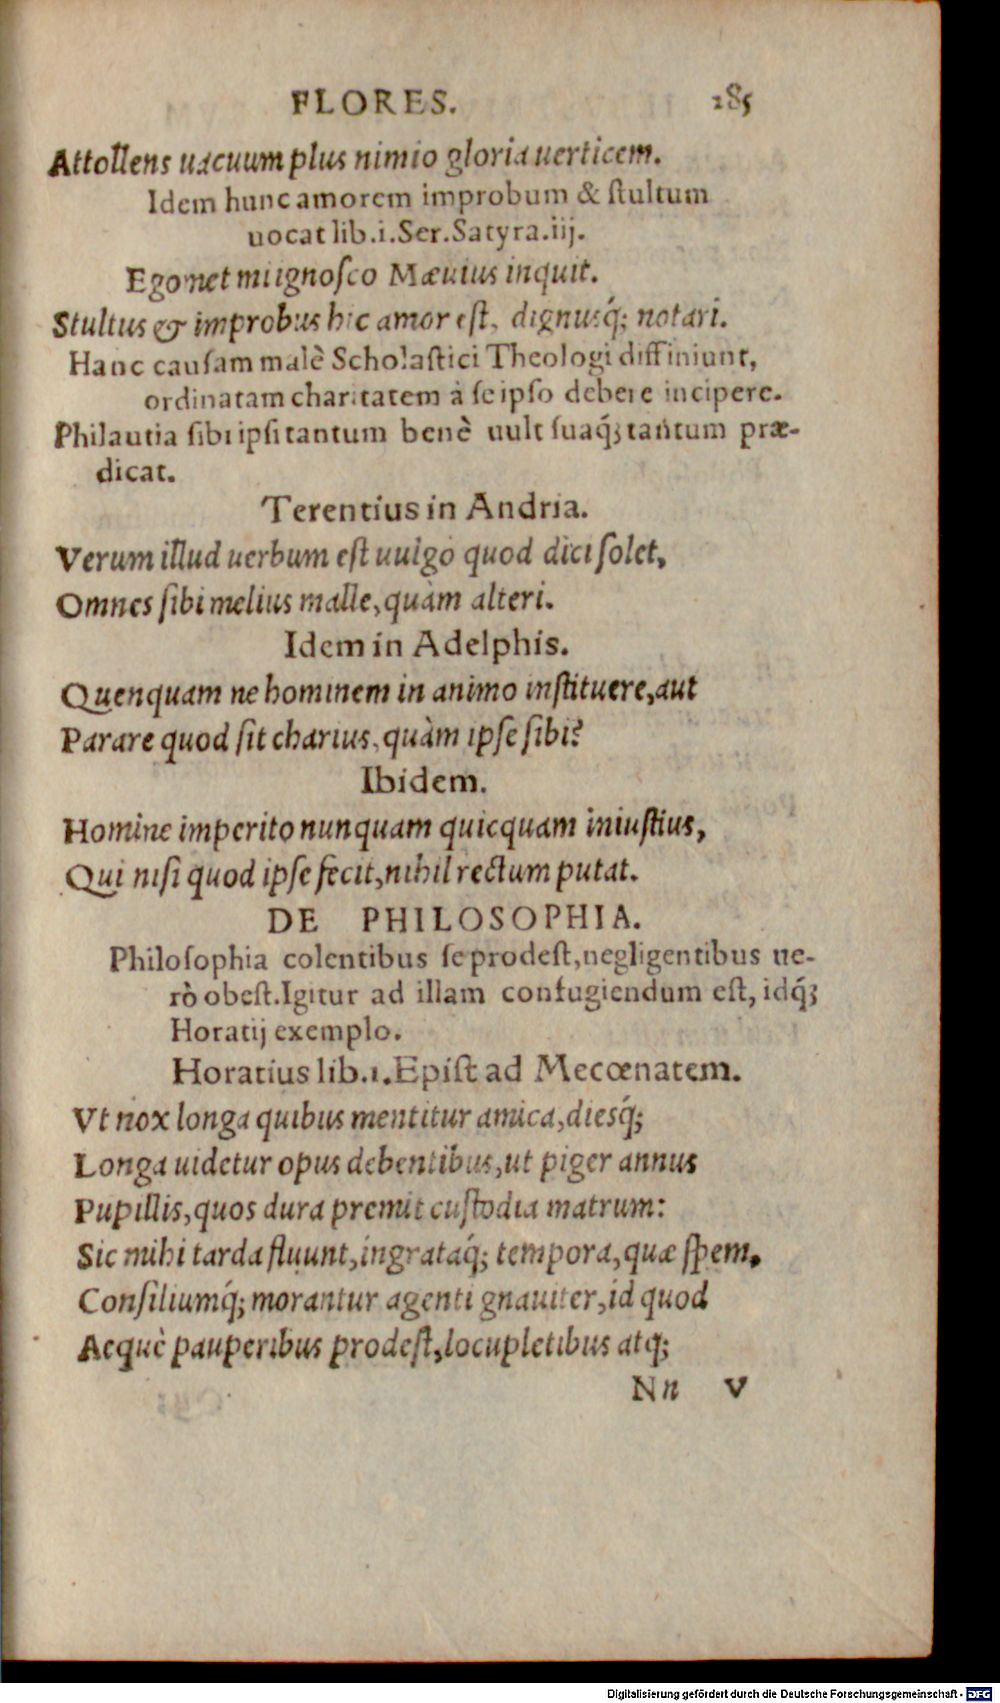 FLORES. 285
Attollens uacuum plus nimio gloria uerticem.
Idem hunc amorem improbum & ſtultum
uocat lib.i.Ser.Satyra.iij.
Egomet mi ignoſco Mæuius inquit.
Stultus & improbus hic amor eſt, dignusq́; notari.
Hanc cauſam malè Scholaſtici Theologi diffiniunt,
ordinatam charitatem à ſe ipſo debere incipere.
Philautia ſibi ipſi tantum benè uult ſuaq́; tantum præ-
dicat.
Terentius in Andria.
Verum illud uerbum eſt uulgò quod dici ſolet,
Omnes ſibi melius malle, quàm alteri.
Idem in Adelphis.
Quenquam ne hominem in animo inſtituere, aut
Parare quod ſit charius, quàm ipſe ſibi?
Ibidem.
Homine imperito nunquam quicquam iniuſtius,
Qui niſi quod ipſe fecit, nihil rectum putat.
DE PHILOSOPHIA.
Philoſophia colentibus ſe prodeſt, negligentibus ue-
rò obeſt. Igitur ad illam confugiendum eſt, idq́;
Horatij exemplo.
Horatius lib.1. Epiſt ad Mecœnatem.
Vt nox longa quibus mentitur amica, diesq́;
Longa uidetur opus debentibus, ut piger annus
Pupillis, quos dura premit cuſtodia matrum:
Sic mihi tarda fluunt, ingrataq́; tempora, quæ ſpem,
Conſiliumq́; morantur agenti gnauiter, id quod
Aequè pauperibus prodeſt, locupletibus atq;
Nn v
Digitalisierung gefördert durch die Deutsche Forschungsgemeinschaft - DFG